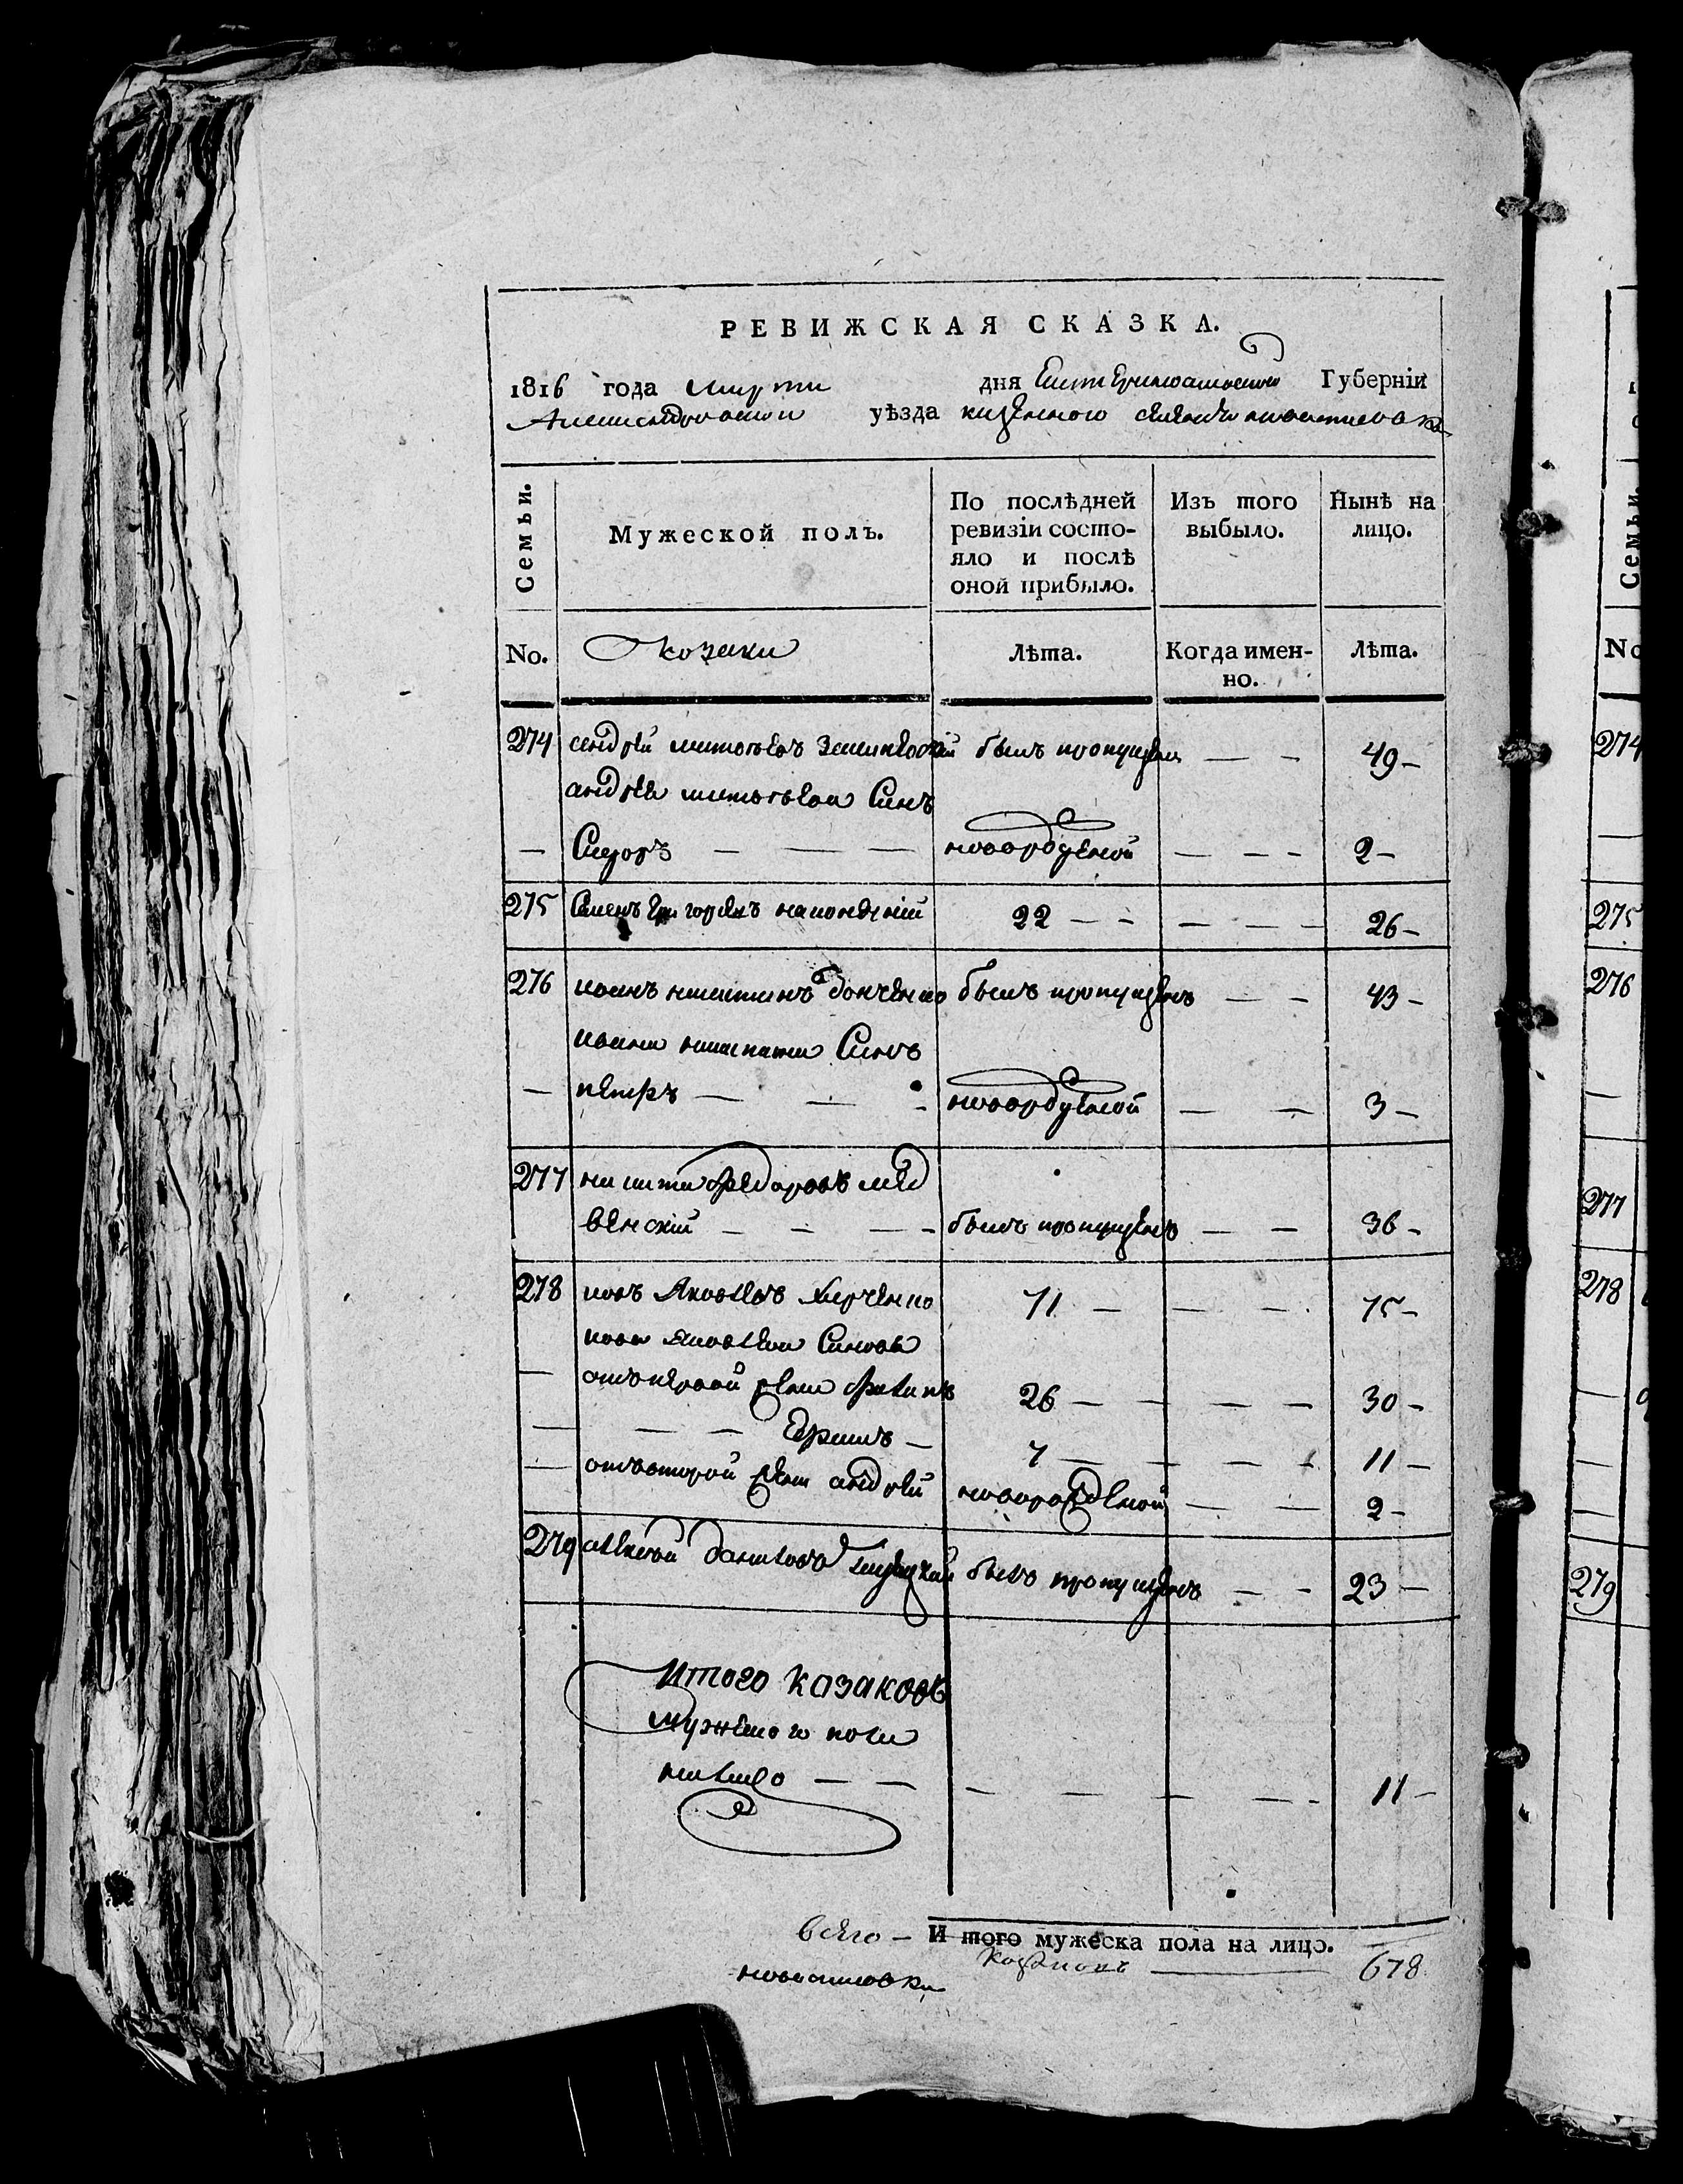 РЕВИЖСКАЯ СКАЗКА.
1816 года марта дня Екатеринославской Губерніи
Александровского уѣзда казенного селения
Семьи. Мужеской полъ. По послѣдней ревизіи состояло и послѣ оной прибыло. Изъ того выбыло. Нынѣ на лицо.
No. козаки Лѣта. Когда именно. Лѣта.
274 андрей матвѣевъ былъ пропущенъ — — 49 —
андрея матвѣева Синъ
— Сидоръ — — — новорожденой — — — 2 —
275 Семенъ григорьевъ 22 — — — — — 26 —
276 иванъ былъ пропущенъ — — 43 —
ивана Синъ
— петръ — — - новорожденой — — 3 —
277 никита федоровъ мед
венскій — — — былъ пропущенъ — — 36 —
278 иовъ Яковлевъ Харченко 71 — — — 75 —
иова Яковлева Синовя
— отъ первой жени филипъ 26 — — — — 30 —
— — — Ефимъ — 7 — — — 11 —
— отъ второй жени андрей новорожденой — — 2 —
279 алексей даниловъ былъ пропущенъ — — 23 —
Итого козаковъ
мужеского пола
налицо — — — — — — 11 —
всего — И того мужеска пола на лицо.
козаковъ — 678